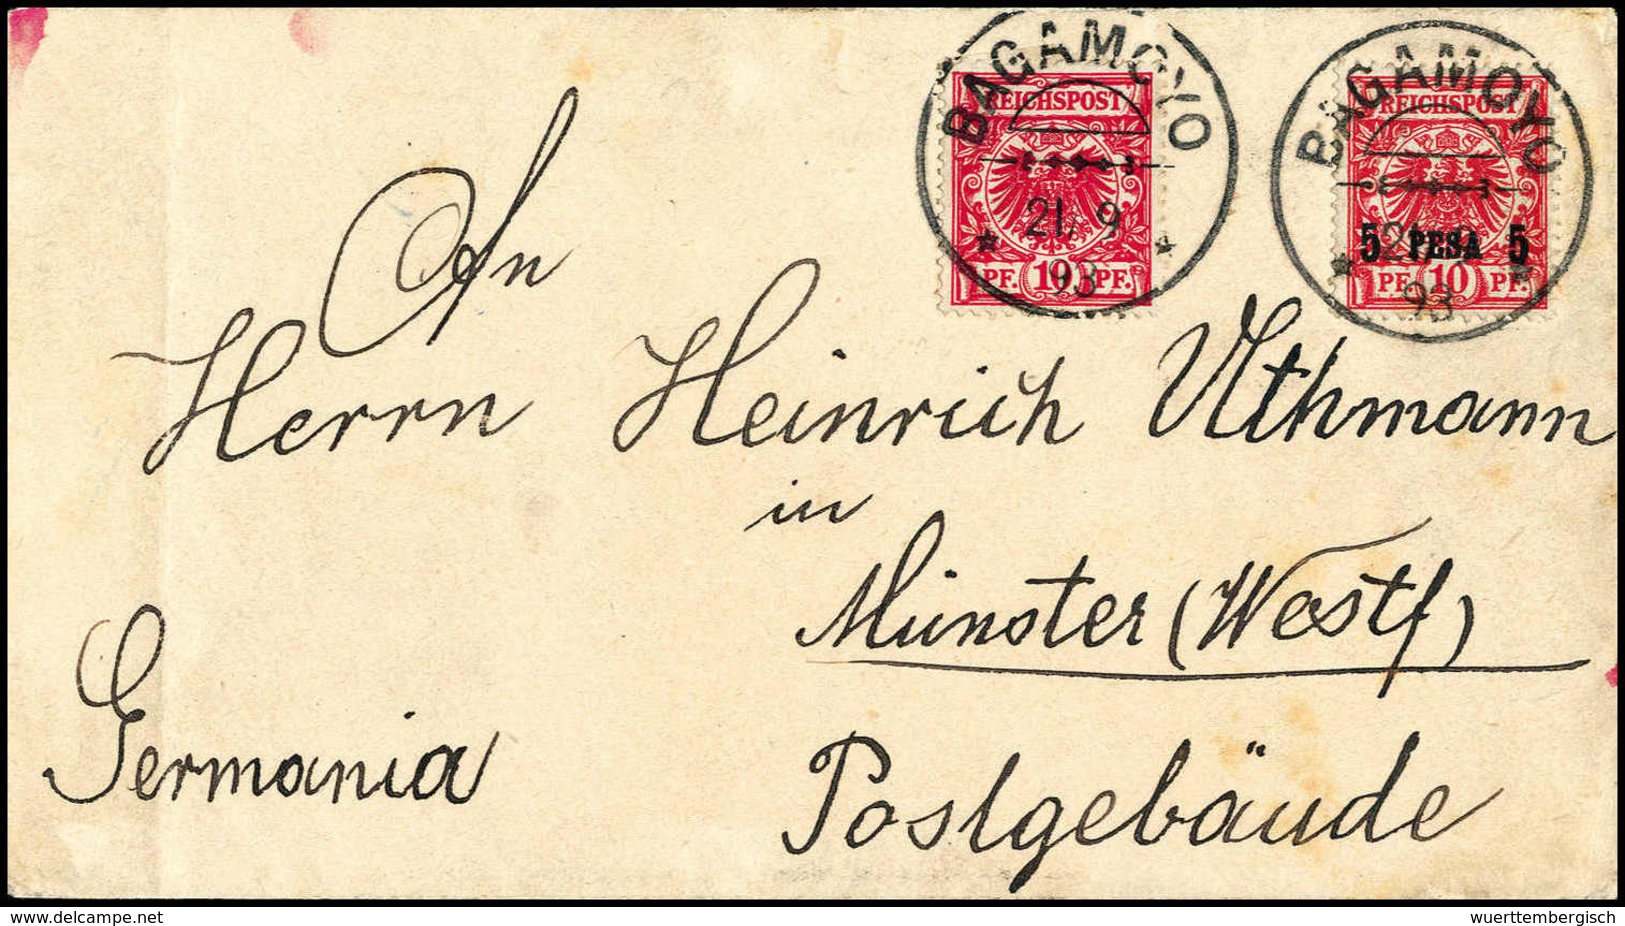 BAGAMOYO
21/9
93
REICHSPOST
PF. 10 PF.
BAGAMOYO
21/9
93
REICHSPOST
5 PESA 5
PF. 10 PF.
An
Herrn Heinrich Uthmann
in
Münster (Westf)
Germania
Postgebäude
www.delcampe.net
wuerttembergisch